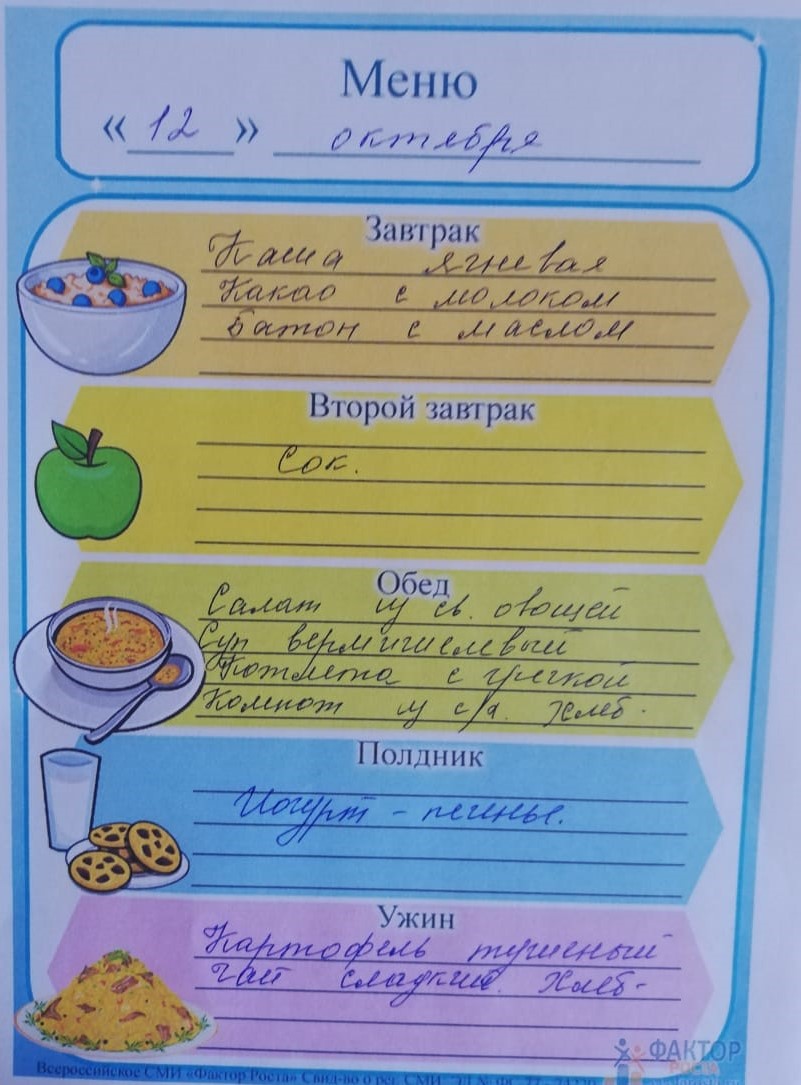 Меню
« 12 » октября
Завтрак
Каша ягневая
Какао с молоком
Батон с маслом
Второй завтрак
Сок.
Обед
Салат из св. овощей
Суп вермишелевый
Котлета с гречкой
Компот из с/ф. Хлеб.
Полдник
Йогурт - печенье.
Ужин
Картофель тушеный
Чай сладкий. Хлеб-
ФАКТОР
РОСТА
Всероссийское СМИ «Фактор Роста» Свид-во о рег. СМИ: